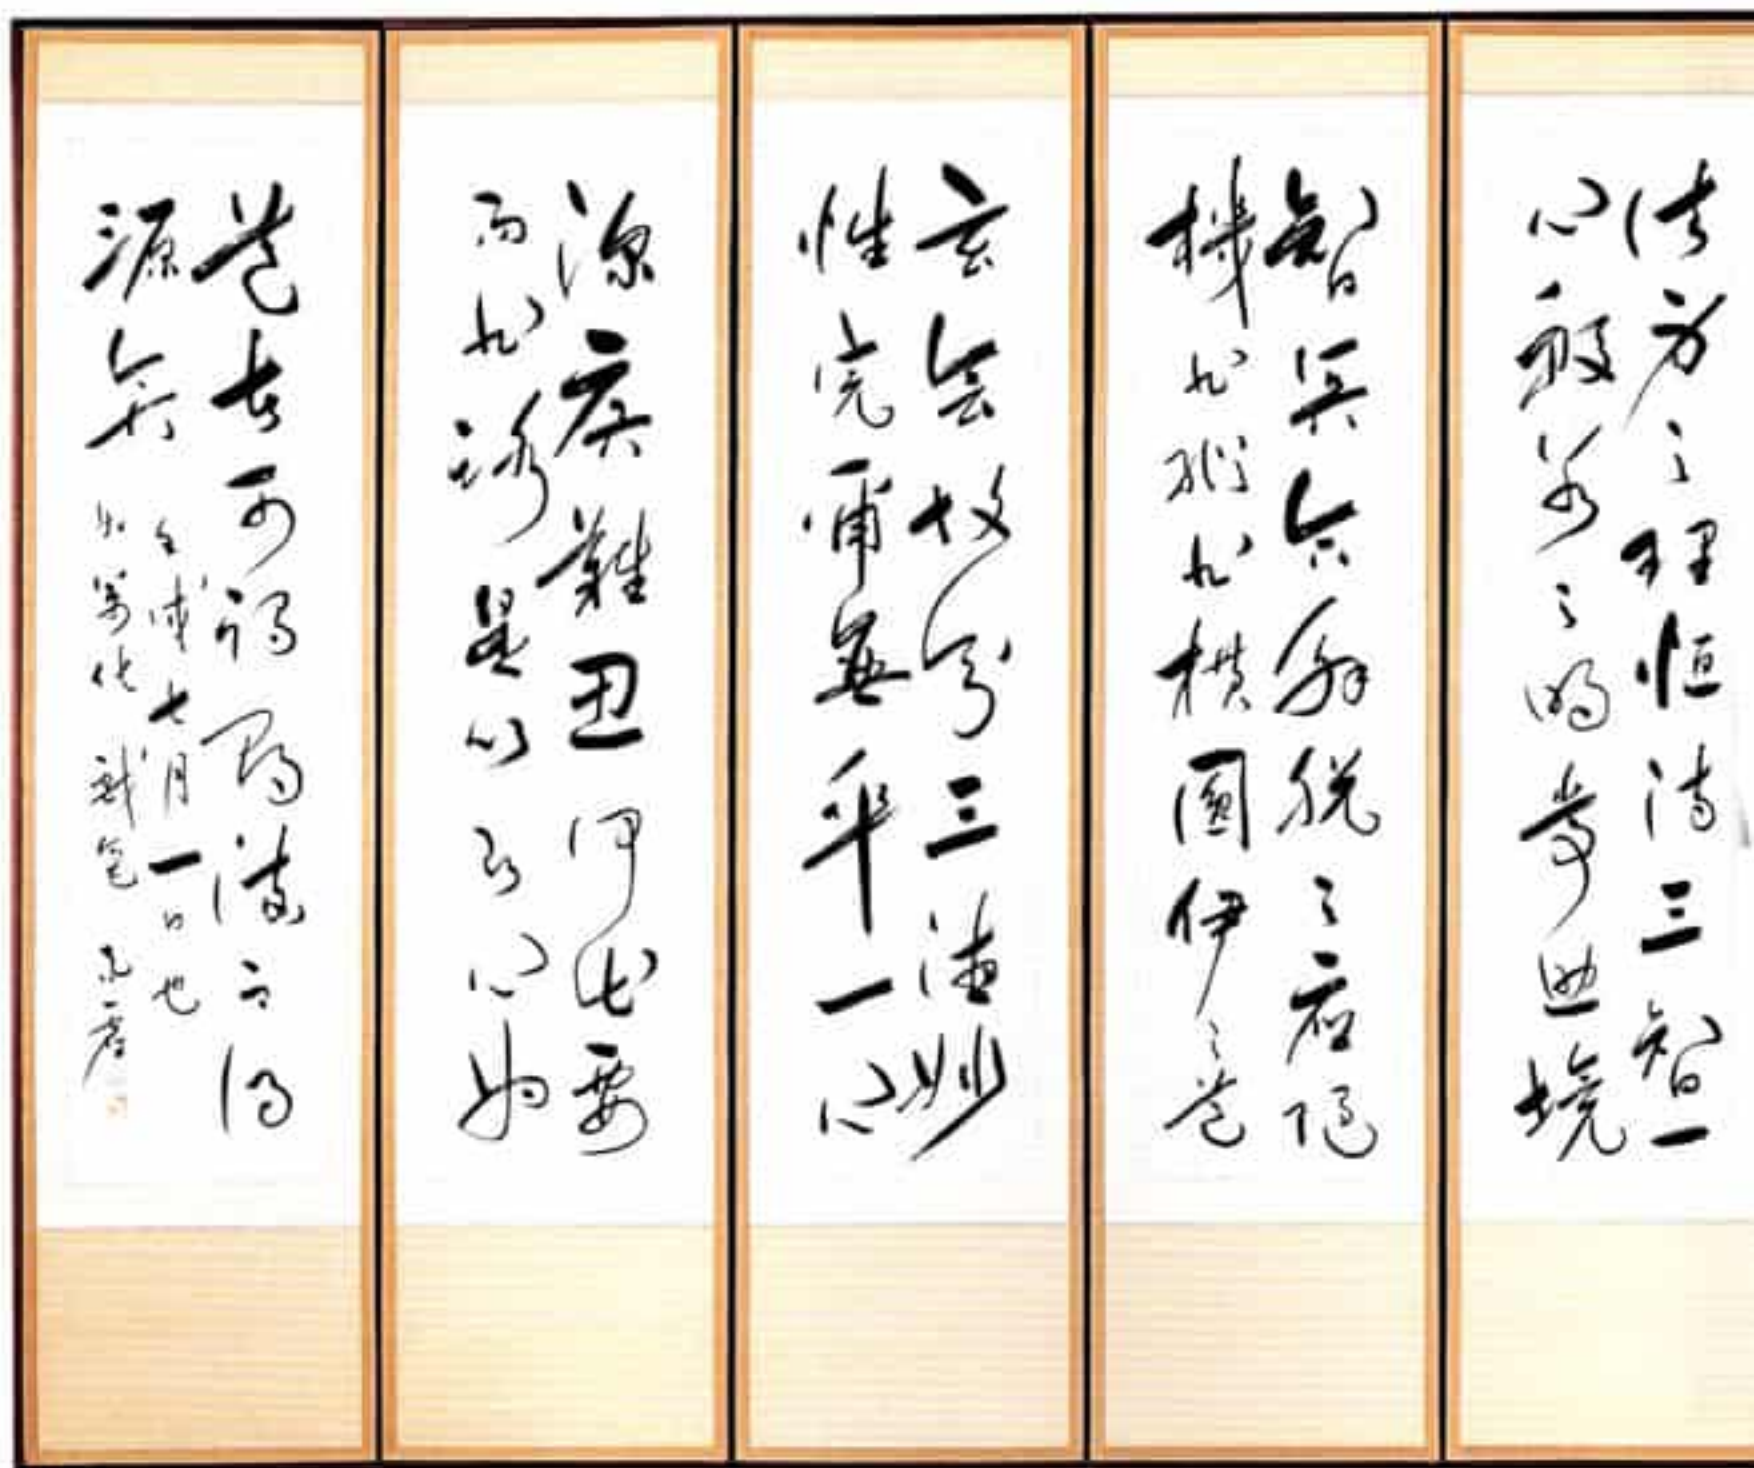 法身之理恒清三智一
心般若之明常照境
智冥合解脱之應隨
機非縱非橫圓伊之道
玄會故三德妙
性宛爾無乖一心
深廣難思何出要
而非路是以即心為
道者可謂尋流而得
源矣
歲七月一日也